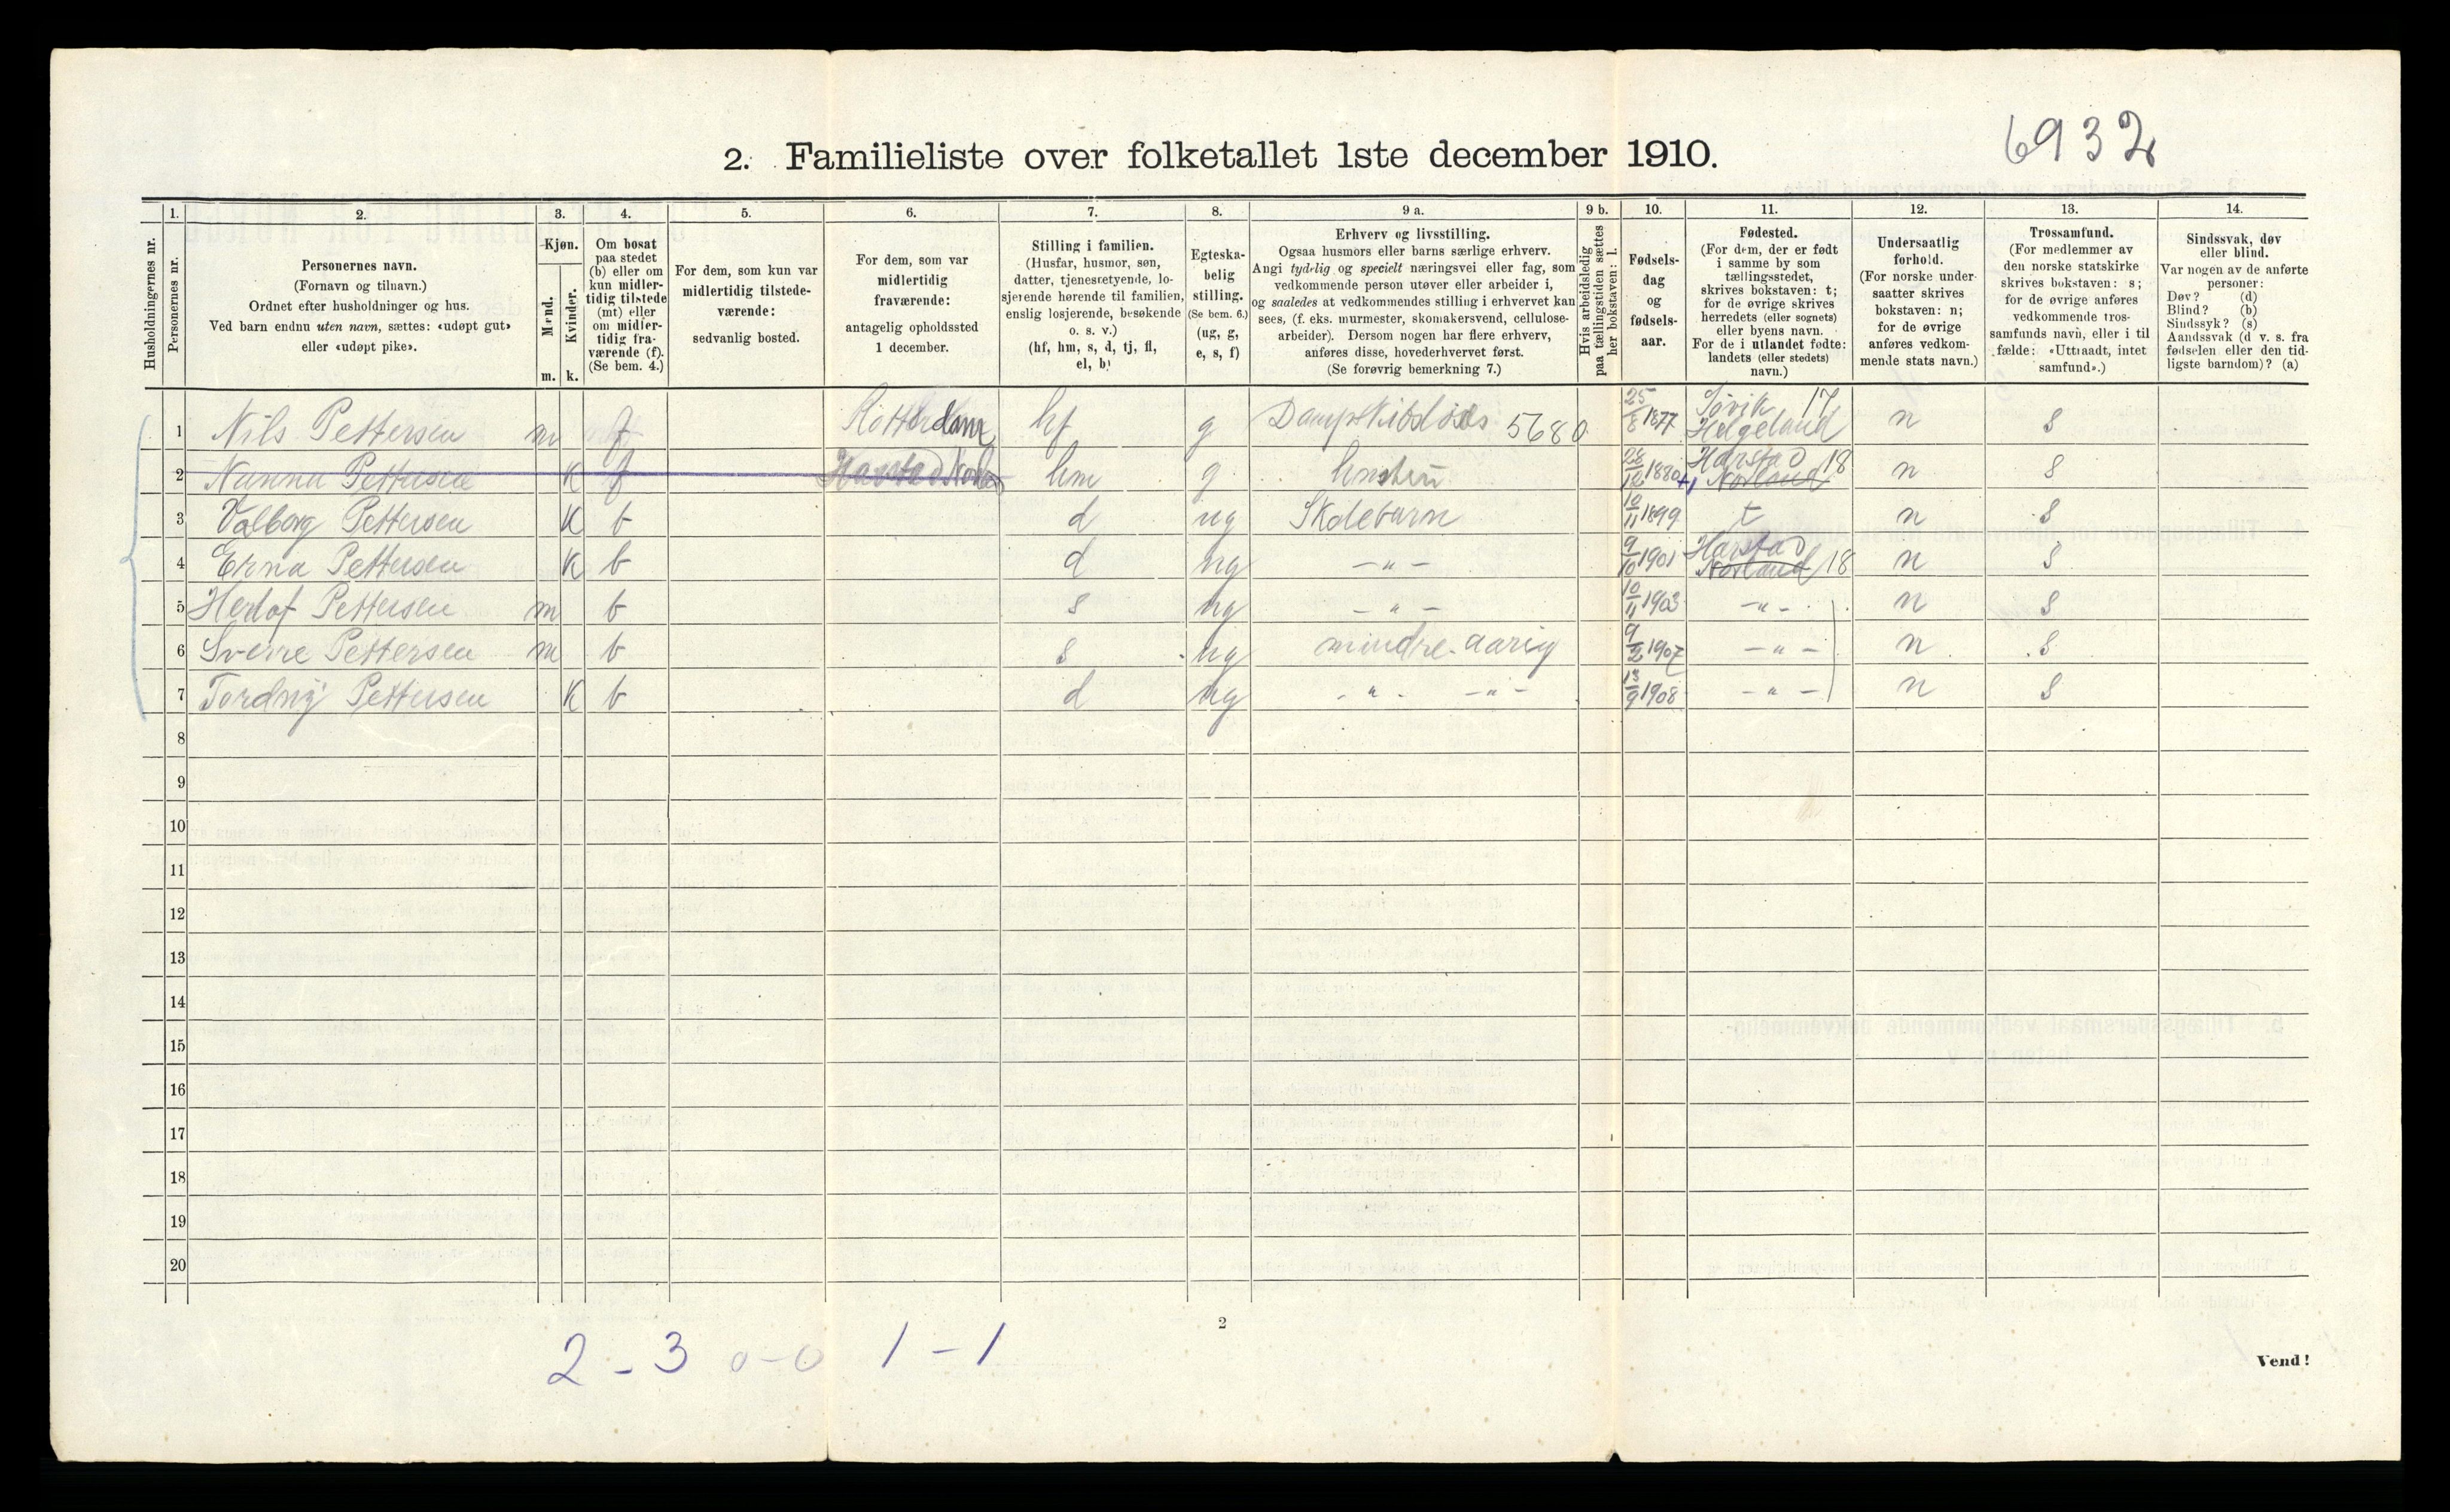 6932
2. Familieliste over folketallet 1ste december 1910.
1. 2. 3. 4. 5. 6. 7. 8. 9 a. 9 b. 10. 11. 12. 13. 14.
Husholdningernes nr.
Personernes nr.
Personernes navn.
(Fornavn og tilnavn.)
Ordnet efter husholdninger og hus.
Ved barn endnu uten navn, sættes: «udøpt gut»
eller «udøpt pike».
Kjøn.
Mænd.
Kvinder.
m. k.
Om bosat
paa stedet
(b) eller om
kun midler-
tidig tilstede
(mt) eller
om midler-
tidig fra-
værende (f).
(Se bem. 4.)
For dem, som kun var
midlertidig tilstede-
værende:
sedvanlig bosted.
For dem, som var
midlertidig
fraværende:
antagelig opholdssted
1 december.
Stilling i familien.
(Husfar, husmor, søn,
datter, tjenestetyende, lo-
sjerende hørende til familien,
enslig losjerende, besøkende
o. s. v.)
(hf, hm, s, d, tj, fl,
el, b)
Egteska-
belig
stilling.
(Se bem. 6.)
(ug, g,
e, s, f)
Erhverv og livsstilling.
Ogsaa husmors eller barns særlige erhverv.
Angi tydelig og specielt næringsvei eller fag, som
vedkommende person utøver eller arbeider i,
og saaledes at vedkommendes stilling i erhvervet kan
sees, (f. eks. murmester, skomakersvend, cellulose-
arbeider). Dersom nogen har flere erhverv,
anføres disse, hovederhvervet først.
(Se forøvrig bemerkning 7.)
Hvis arbeidsledig
paa tællingstiden sættes
her bokstaven: l.
Fødsels-
dag
og
fødsels-
aar.
Fødested.
(For dem, der er født
i samme by som
tællingsstedet,
skrives bokstaven: t;
for de øvrige skrives
herredets (eller sognets)
eller byens navn.
For de i utlandet fødte:
landets (eller stedets)
navn.)
Undersaatlig
forhold.
(For norske under-
saatter skrives
bokstaven: n;
for de øvrige
anføres vedkom-
mende stats navn.)
Trossamfund.
(For medlemmer av
den norske statskirke
skrives bokstaven: s;
for de øvrige anføres
vedkommende tros-
samfunds navn, eller i til
fælde: «Uttraadt, intet
samfund».)
Sindssvak, døv
eller blind.
Var nogen av de anførte
personer:
Døv? (d)
Blind? (b)
Sindssyk? (s)
Aandssvak (d v. s. fra
fødselen eller den tid-
ligste barndom)? (a)
1 Nils Pettersen m f Rotterdam hf g Dampskibs 5680 25/8 1877 Søvik 17 Helgeland n s
2 Nanna Pettersen K f Harstad hm g hustru 28/12 1880 +1 Harstad 18 Norland n s
3 Valborg Pettersen K b d ug Skolebarn 10/11 1899 t n s
4 Erna Pettersen K b d ug -"- 9/10 1901 Harstad Norland 18 n s
5 Herlof Pettersen m b s ug -"- 10/11 1903 -"- n s
6 Sverre Pettersen m b s ug mindre-aarig 9/2 1907 -"- n s
7 Tordny Pettersen K b d ug -"- -"- 13/9 1908 -"- n s
8
9
10
11
12
13
14
15
16
17
18
19
20
2
2 - 3 0-0 1 - 1
Vend!